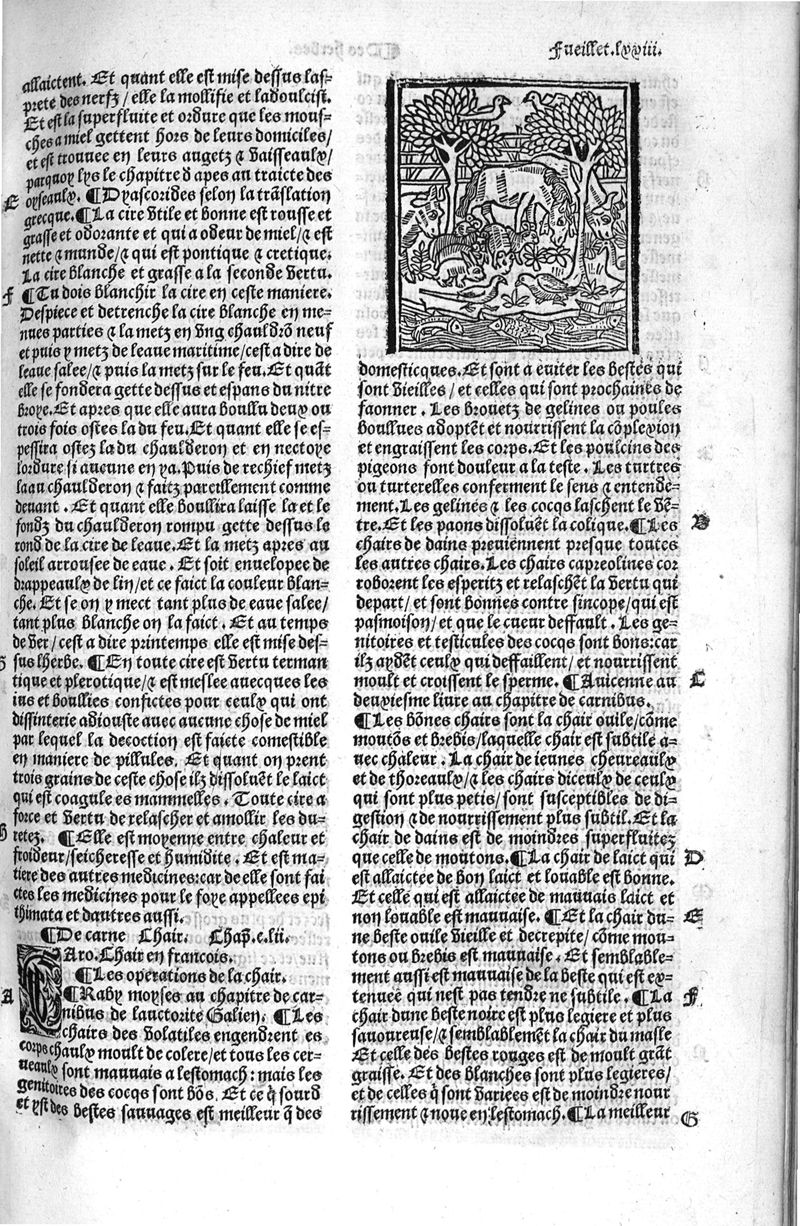 Fueillet.lxxiii.
allaictent. Et quant elle est mise dessus las-
prete des nerfz / elle la mollifie et ladoulcist.
Et est la superfluite et ordure que les mous-
ches a miel gettent hors de leurs domiciles /
et est trouuee en leurs augetz ⁊ vaisseaulx /
parquoy lys le chapitre d apes au traicte des
E oyseaulx. ¶ Dyascorides selon la trãslation
grecque. ¶ La cire vtile et bonne est rousse et
grasse et odorante et qui a odeur de miel / ⁊ est
nette ⁊ munde / ⁊ qui est pontique ⁊ cretique.
La cire blanche et grasse a la seconde vertu.
F ¶ Tu dois blanchir la cire en ceste maniere.
Despiece et detrenche la cire blanche en me-
nues parties ⁊ la metz en vng chauldrõ neuf
et puis y metz de leaue maritime / cest a dire de
leaue salee / ⁊ puis la metz sur le feu. Et quãt
elle se fondera gette dessus et espans du nitre
broye. Et apres que elle aura boullu deux ou
trois fois ostes la du feu. Et quant elle se es-
pessira ostez la du chaulderon et en nectoye
lordure si aucune en ya. Puis de rechief metz
la au chaulderon ⁊ faitz pareillement comme
deuant. Et quant elle boullira laisse la et le
fondz du chaulderon rompu gette dessus le
rond de la cire de leaue. Et la metz apres au
soleil arrousee de eaue. Et soit enuelopee de
drappeaulx de lin / et ce faict la couleur blan-
che. Et se on y mect tant plus de eaue salee /
tant plus blanche on la faict. Et au temps
de ver / cest a dire printemps elle est mise des-
G sus lherbe. ¶ En toute cire est vertu terman
tique et plerotique / ⁊ est meslee auecques les
ius et boullies confictes pour ceulx qui ont
dissinterie adiouste auec aucune chose de miel
par lequel la decoction est faicte comestible
en maniere de pillules. Et quant on prent
trois grains de ceste chose ilz dissoluẽt le laict
qui est coagule es mammelles. Toute cire a
force et vertu de relascher et amollir les du-
H retez. ¶ Elle est moyenne entre chaleur et
froideur / seicheresse et humidite. Et est ma-
tiere des autres medicines: car de elle sont fai
ctes les medicines pour le foye appellees epi
thimata et dautres aussi.
¶ De carne Chair. Chap. c.lii.
CAro. Chair en francois.
¶ Les operations de la chair.
A ¶ Raby moyses au chapitre de car-
nibus de lauctorite Galien. ¶ Les
chairs des volatiles engendrent es
corps chaulx moult de colere / et tous les cer-
ueaulx sont mauuais a lestomach: mais les
genitoires des cocqs sont bõs. Et ce q̃ sourd
et yst des bestes sauuages est meilleur q̃ des
domesticques. Et sont a euiter les bestes qui
sont vieilles / et celles qui sont prochaines de
faonner. Les brouetz de gelines ou poules
boullues adoptẽt et nourrissent la cõplexion
et engraissent les corps. Et les poulcins des
pigeons font douleur a la teste. Les turtres
ou turterelles conferment le sens ⁊ entende-
ment. Les gelines ⁊ les cocqs laschent le vẽ-
tre. Et les paons dissoluẽt la colique. ¶ Les B
chairs de dains preuiennent presque toutes
les autres chairs. Les chairs capreolines cor
roborent les esperitz et relaschẽt la vertu qui
depart / et sont bonnes contre sincope / qui est
pasmoison / et que le cueur deffault. Les ge-
nitoires et testicules des cocqs sont bons: car
ilz aydẽt ceulx qui deffaillent / et nourrissent
moult et croissent le sperme. ¶ Auicenne au C
deuxiesme liure au chapitre de carnibus.
¶ Les bõnes chairs sont la chair ouile / cõme
moutõs et brebis / laquelle chair est subtile a-
uec chaleur. La chair de ieunes cheureaulx
et de thoreaulx / ⁊ les chairs diceulx de ceulx
qui sont plus petis / sont susceptibles de di-
gestion ⁊ de nourrissement plus subtil. Et la
chair de dains est de moindres superfluitez
que celle de moutons. ¶ La chair de laict qui D
est allaictee de bon laict et louable est bonne.
Et celle qui est allaictee de mauuais laict et
non louable est mauuaise. ¶ Et la chair du- E
ne beste ouile vieille et decrepite / cõme mou-
tons ou brebis est mauuaise. Et semblable-
ment aussi est mauuaise de la beste qui est ex-
tenuee qui nest pas tendre ne subtile. ¶ La F
chair dune beste noire est plus legiere et plus
sauoureuse / ⁊ semblablemẽt la chair du masle
Et celle des bestes rouges est de moult grãt
graisse. Et des blanches sont plus legieres /
et de celles q̃ sont variees est de moindre nour
rissement ⁊ noue en lestomach. ¶ La meilleur G